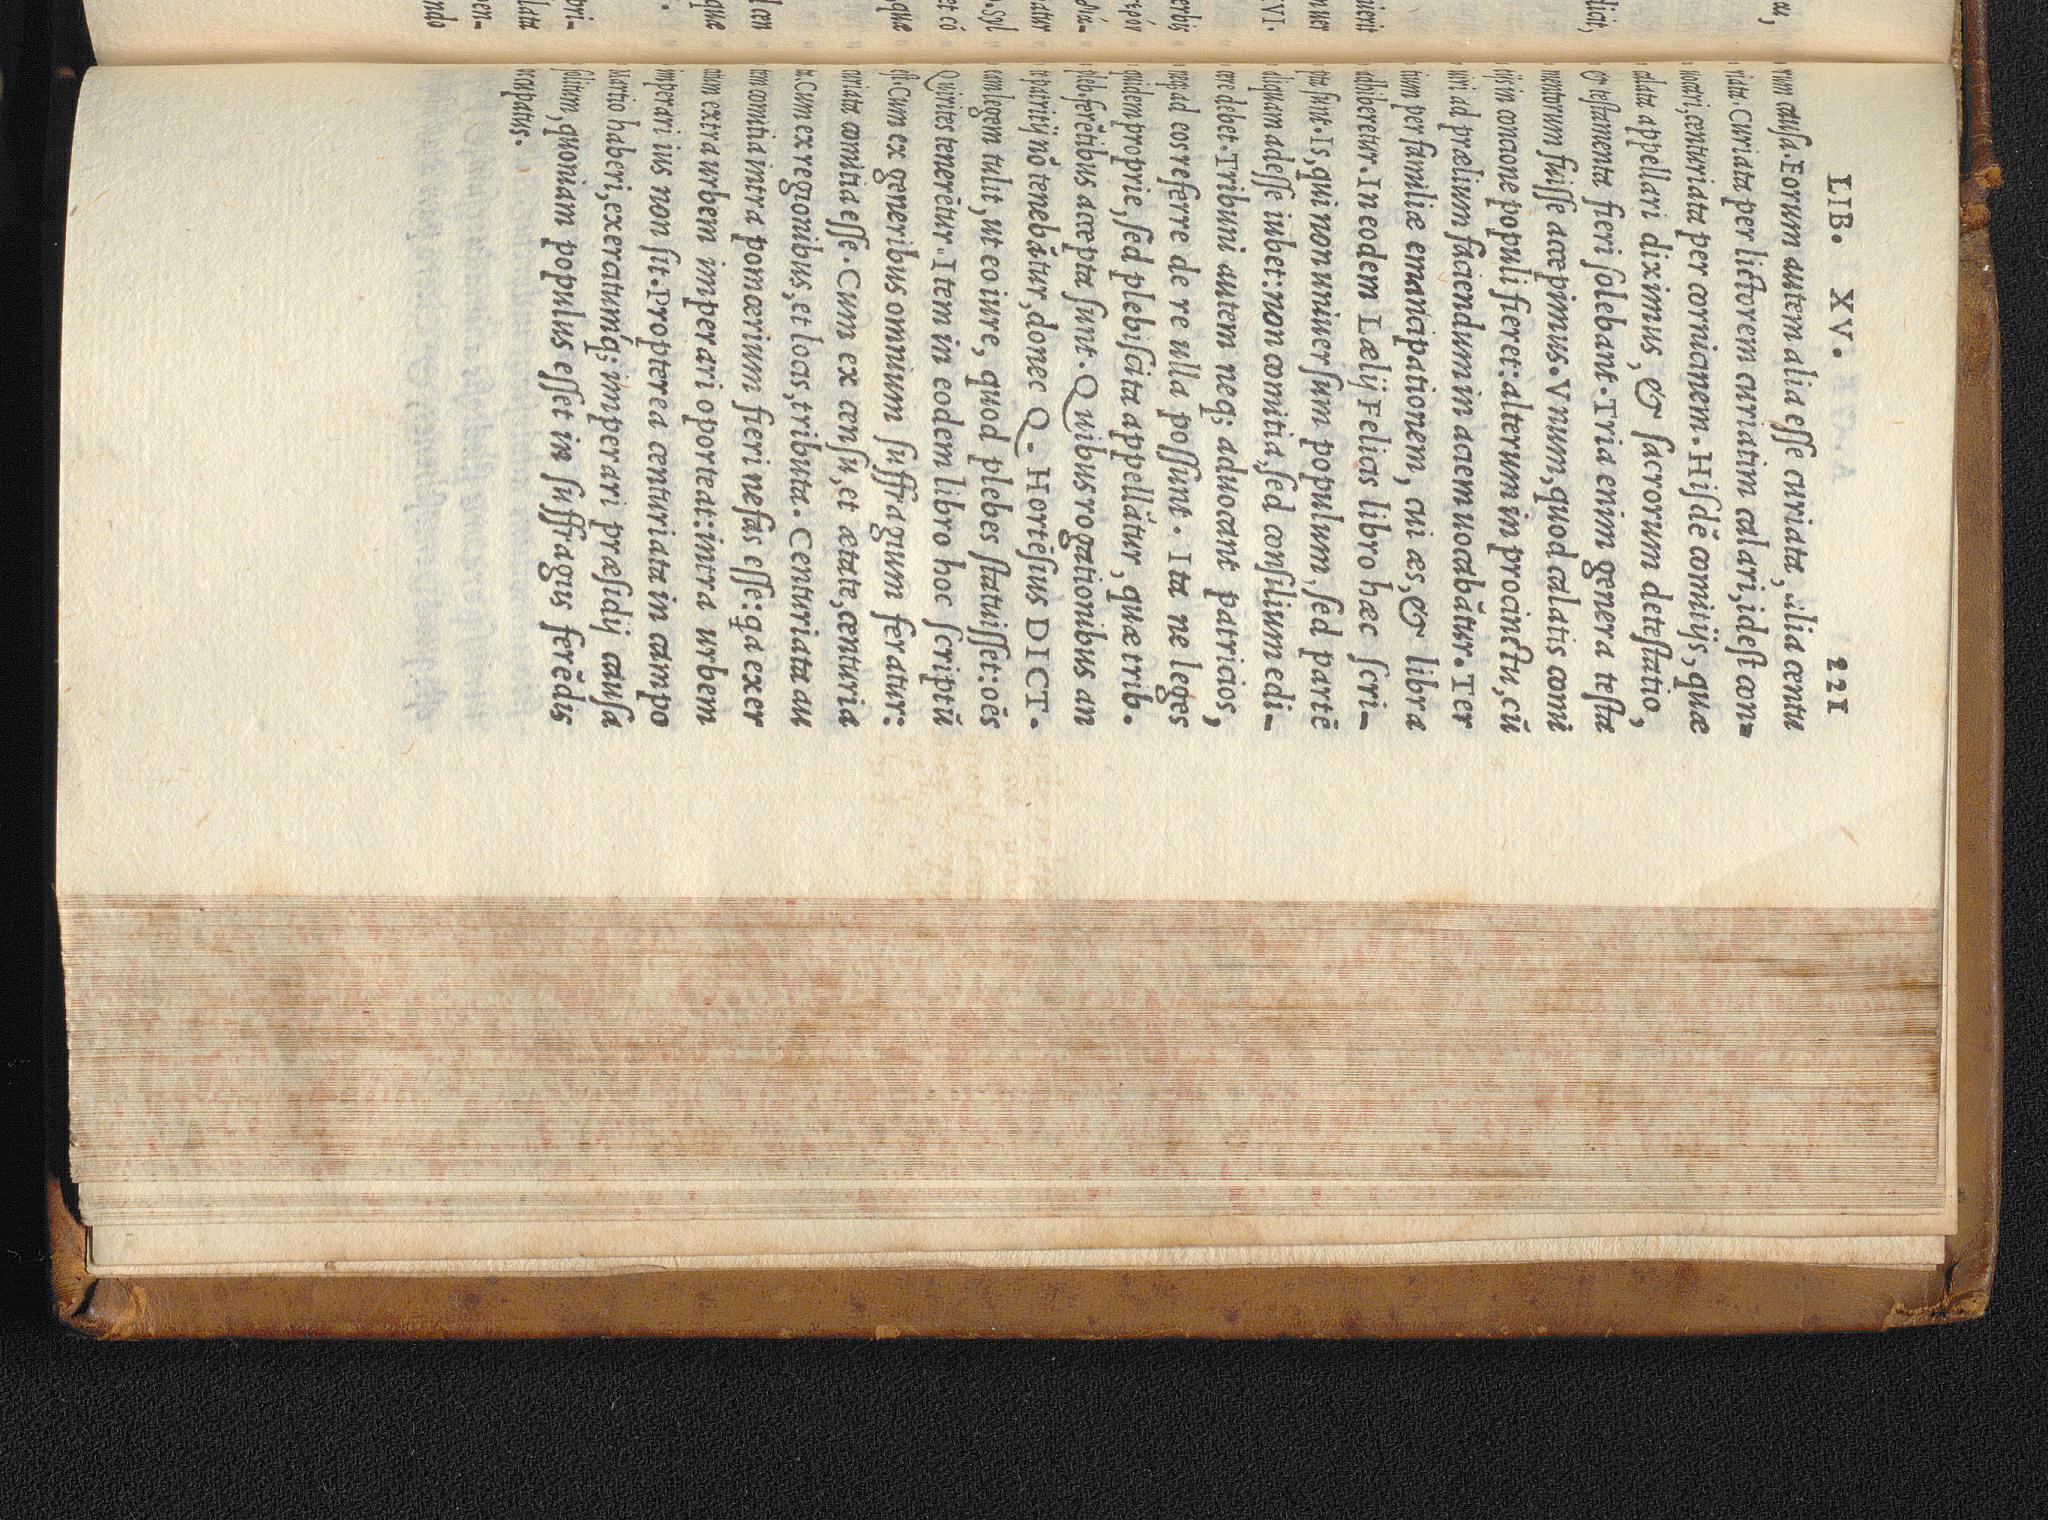 LIB. XV. 221
rum cauſa. Eorum autem alia eſſe curiata, alia centu
riata. Curiata per lictorem curiatim calari, ideſt con-
uocari, centuriata per cornicinem. Hiſdē comitijs, quæ
calata appellari diximus, & ſacrorum deteſtatio,
& teſtamenta fieri ſolebant. Tria enim genera teſta
mentorum fuiſſe accepimus. Vnum, quod calatis comi
tijs in concione populi fieret: alterum in procinctu, cū
uiri ad prælium faciendum in aciem uocabātur. Ter
tium per familiæ emancipationem, cui æs, & libra
adhiberetur. In eodem Lælij Felicis libro hæc ſcri-
pta ſunt. Is, qui non uniuerſum populum, ſed partē
aliquam adeſſe iubet: non comitia, ſed conſilium edi-
cere debet. Tribuni autem neq; aduocant patricios,
neq; ad eos referre de re ulla poſſunt. Ita ne leges
quidem proprie, ſed plebiſcita appellātur, quæ trib.
pleb. ferētibus accepta ſunt. Quibus rogationibus an
te patritij nō tenebātur, donec Q. Hortēſius DICT.
eam legem tulit, ut eo iure, quod plebes ſtatuiſſet: oēs
Quirites tenerētur. Item in eodem libro hoc ſcriptū
eſt. Cum ex generibus omnium ſuffragium feratur:
curiata comitia eſſe. Cum ex cenſu, et ætate, centuria
ta. Cum ex regionibus, et locis, tributa. Centuriata au
tem comitia intra pomœrium fieri nefas eſſe: qa exer
citum extra urbem imperari oportet: intra urbem
imperari ius non ſit. Propterea centuriata in campo
Martio haberi, exercitumq; imperari præſidij cauſa
ſolitum, quoniam populus eſſet in ſuffragiis ferēdis
occupatus.